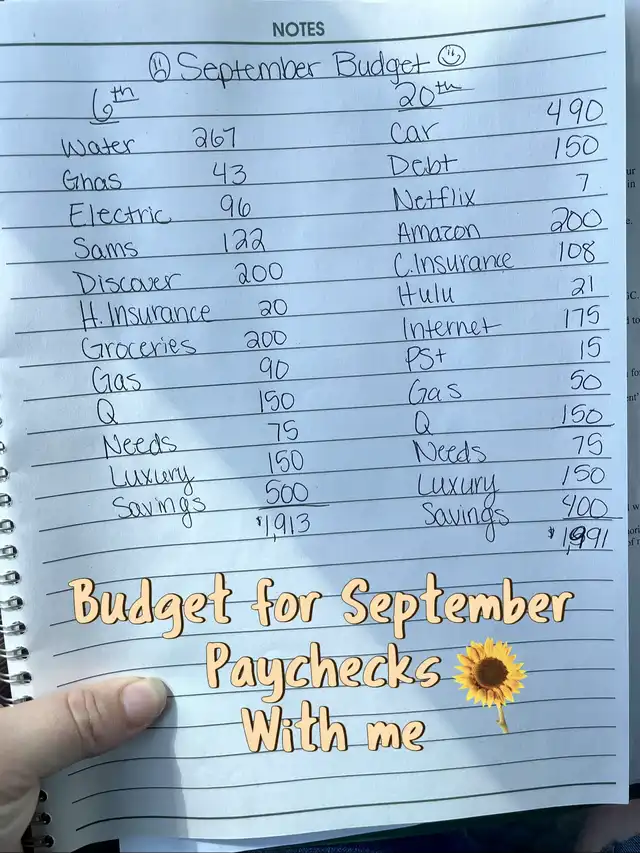 NOTES
September Budget
6th
Water 267
Ghas 43
Electric 96
Sams 122
Discover 200
H. Insurance 20
Groceries 200
Gas 90
Q 150
Needs 75
Luxury 150
Savings 500
$1,913
20th
Car 490
Debt 150
Netflix 7
Amazon 200
C.Insurance 108
Hulu 21
Internet 175
PS+ 15
Gas 50
Q 150
Needs 75
Luxury 150
Savings 400
$1,991
Budget for September
Paychecks
With me